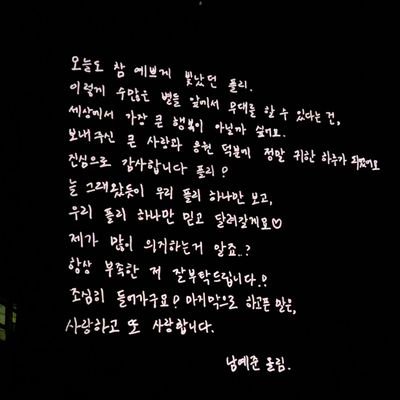 오늘도 참 예쁘게 빛났던 플리.
이렇게 수많은 별들 앞에서 무대를 할 수 있다는 건,
세상에서 가장 큰 행복이 아닐까 싶어요.
보내주신 큰 사랑과 응원 덕분에 정말 귀한 하루가 되었어요
진심으로 감사합니다 플리?
늘 그래왔듯이 우리 플리 하나만 보고,
우리 플리 하나만 믿고 달려갈게요♡
제가 많이 의지하는거 알죠..?
항상 부족한 저 잘부탁드립니다.?
조심히 들어가구요? 마지막으로 하고픈 말은,
사랑하고 또 사랑합니다.
남예준 올림.